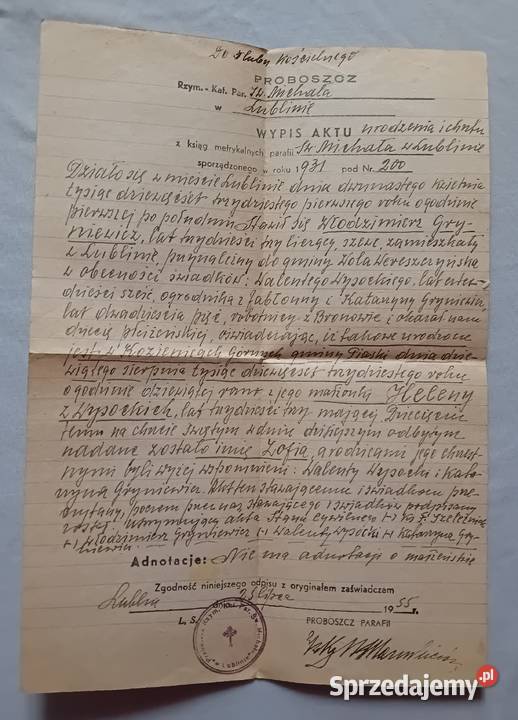 Do ślubu kościelnego
PROBOSZCZ
Rzym.-Kat. Par. Św. Michała
w Lublinie
WYPIS AKTU urodzenia i chrztu
z ksiąg metrykalnych parafii Św Michała w Lublinie
sporządzonego w roku 1931 pod Nr. 200
Działo się w mieście Lublinie dnia dwunastego kwietnia
tysiąc dziewięćset trzydziestego pierwszego roku o godzinie
pierwszej po południu. Stawił się Włodzimierz Gry-
niewicz, lat trzydzieści trzy liczący szewc, zamieszkały
w Lublinie, przynależny do gminy Wola Wereszczyńska
w obecności świadków: Walentego Wysockiego, lat
dzieści sześć, ogrodnika z Jabłonny i Katarzyny Gryniewicz,
lat dwadzieścia pięć, robotnicy z Bronowic i okazał nam
dziecię płci żeńskiej, oświadczając, iż takowe urodzone
jest w Górnych gminy Piaski dnia dzie-
wiątego sierpnia tysiąc dziewięćset trzydziestego roku
o godzinie dziewiątej rano z jego małżonki Heleny
z Wysockich, lat trzydzieści trzy mającej. Dziecięciu
temu na chrzcie świętym w dniu dzisiejszym odbytym
nadane zostało imię Zofia, a rodzicami jego chrzest-
nymi byli wyżej wspomnieni: Walenty Wysocki i Kata-
rzyna Gryniewicz. Akt ten stawającemu i świadkom prze-
czytany, poczem przez nas, stawającego i świadków podpisany
został. Utrzymujący akta Stanu Cywilnego (-) Ks.
(-) Włodzimierz Gryniewicz (-) Walenty Wysocki (-) Katarzyna Gry-
niewicz.
Adnotacje: Nie ma adnotacji o małżeństwie
Zgodność niniejszego odpisu z oryginałem zaświadczam
Lublin 25 lipca 1955 r.
L. S. PROBOSZCZ PARAFII
Sprzedajemy.pl